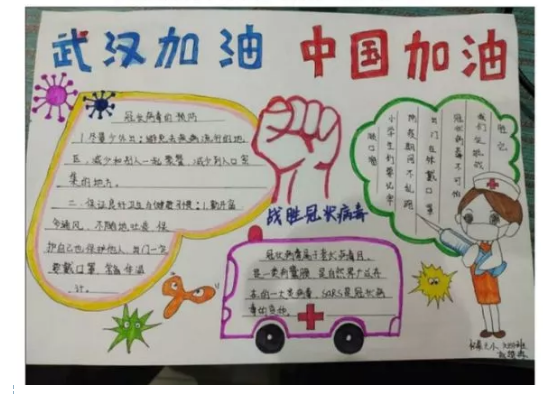 武汉加油 中国加油
冠状病毒的预防
1.尽量少外出:避免去疾病流行的地
区,减少和别人一起聚餐,减少到人口密
集的地方。
二.保证良的卫生与健康习惯:1.勤开窗
多通风,不随地吐痰 保
护自己也保护他人 出门一定
要戴口罩 常备体温
计。
战胜冠状病毒
冠状病毒属于套式病毒目。
是一类病毒 是自然界广泛存
在的一大类病毒,SARS是冠状病
毒的
我们定胜战
冠状病毒不可怕
出门在外戴口罩
防疫期间不乱跑
小学生们要记牢